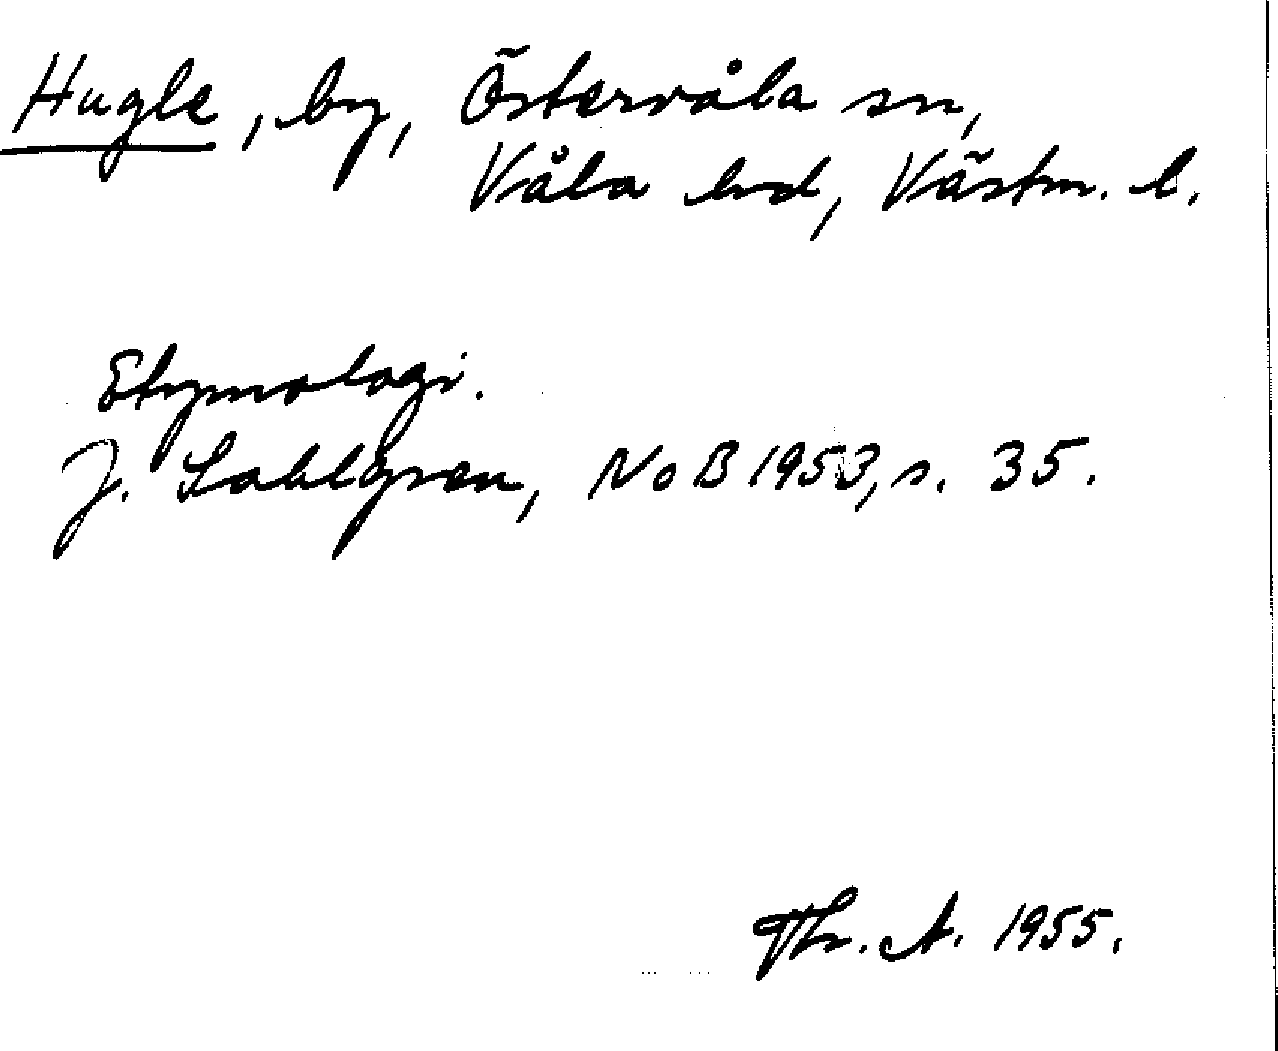 Hugle, by, Östervåla sn,
Våla hd, Västm. l.
Etymologi.
J. Sahlgren, NoB 1953, s. 35.
Th. A. 1955.